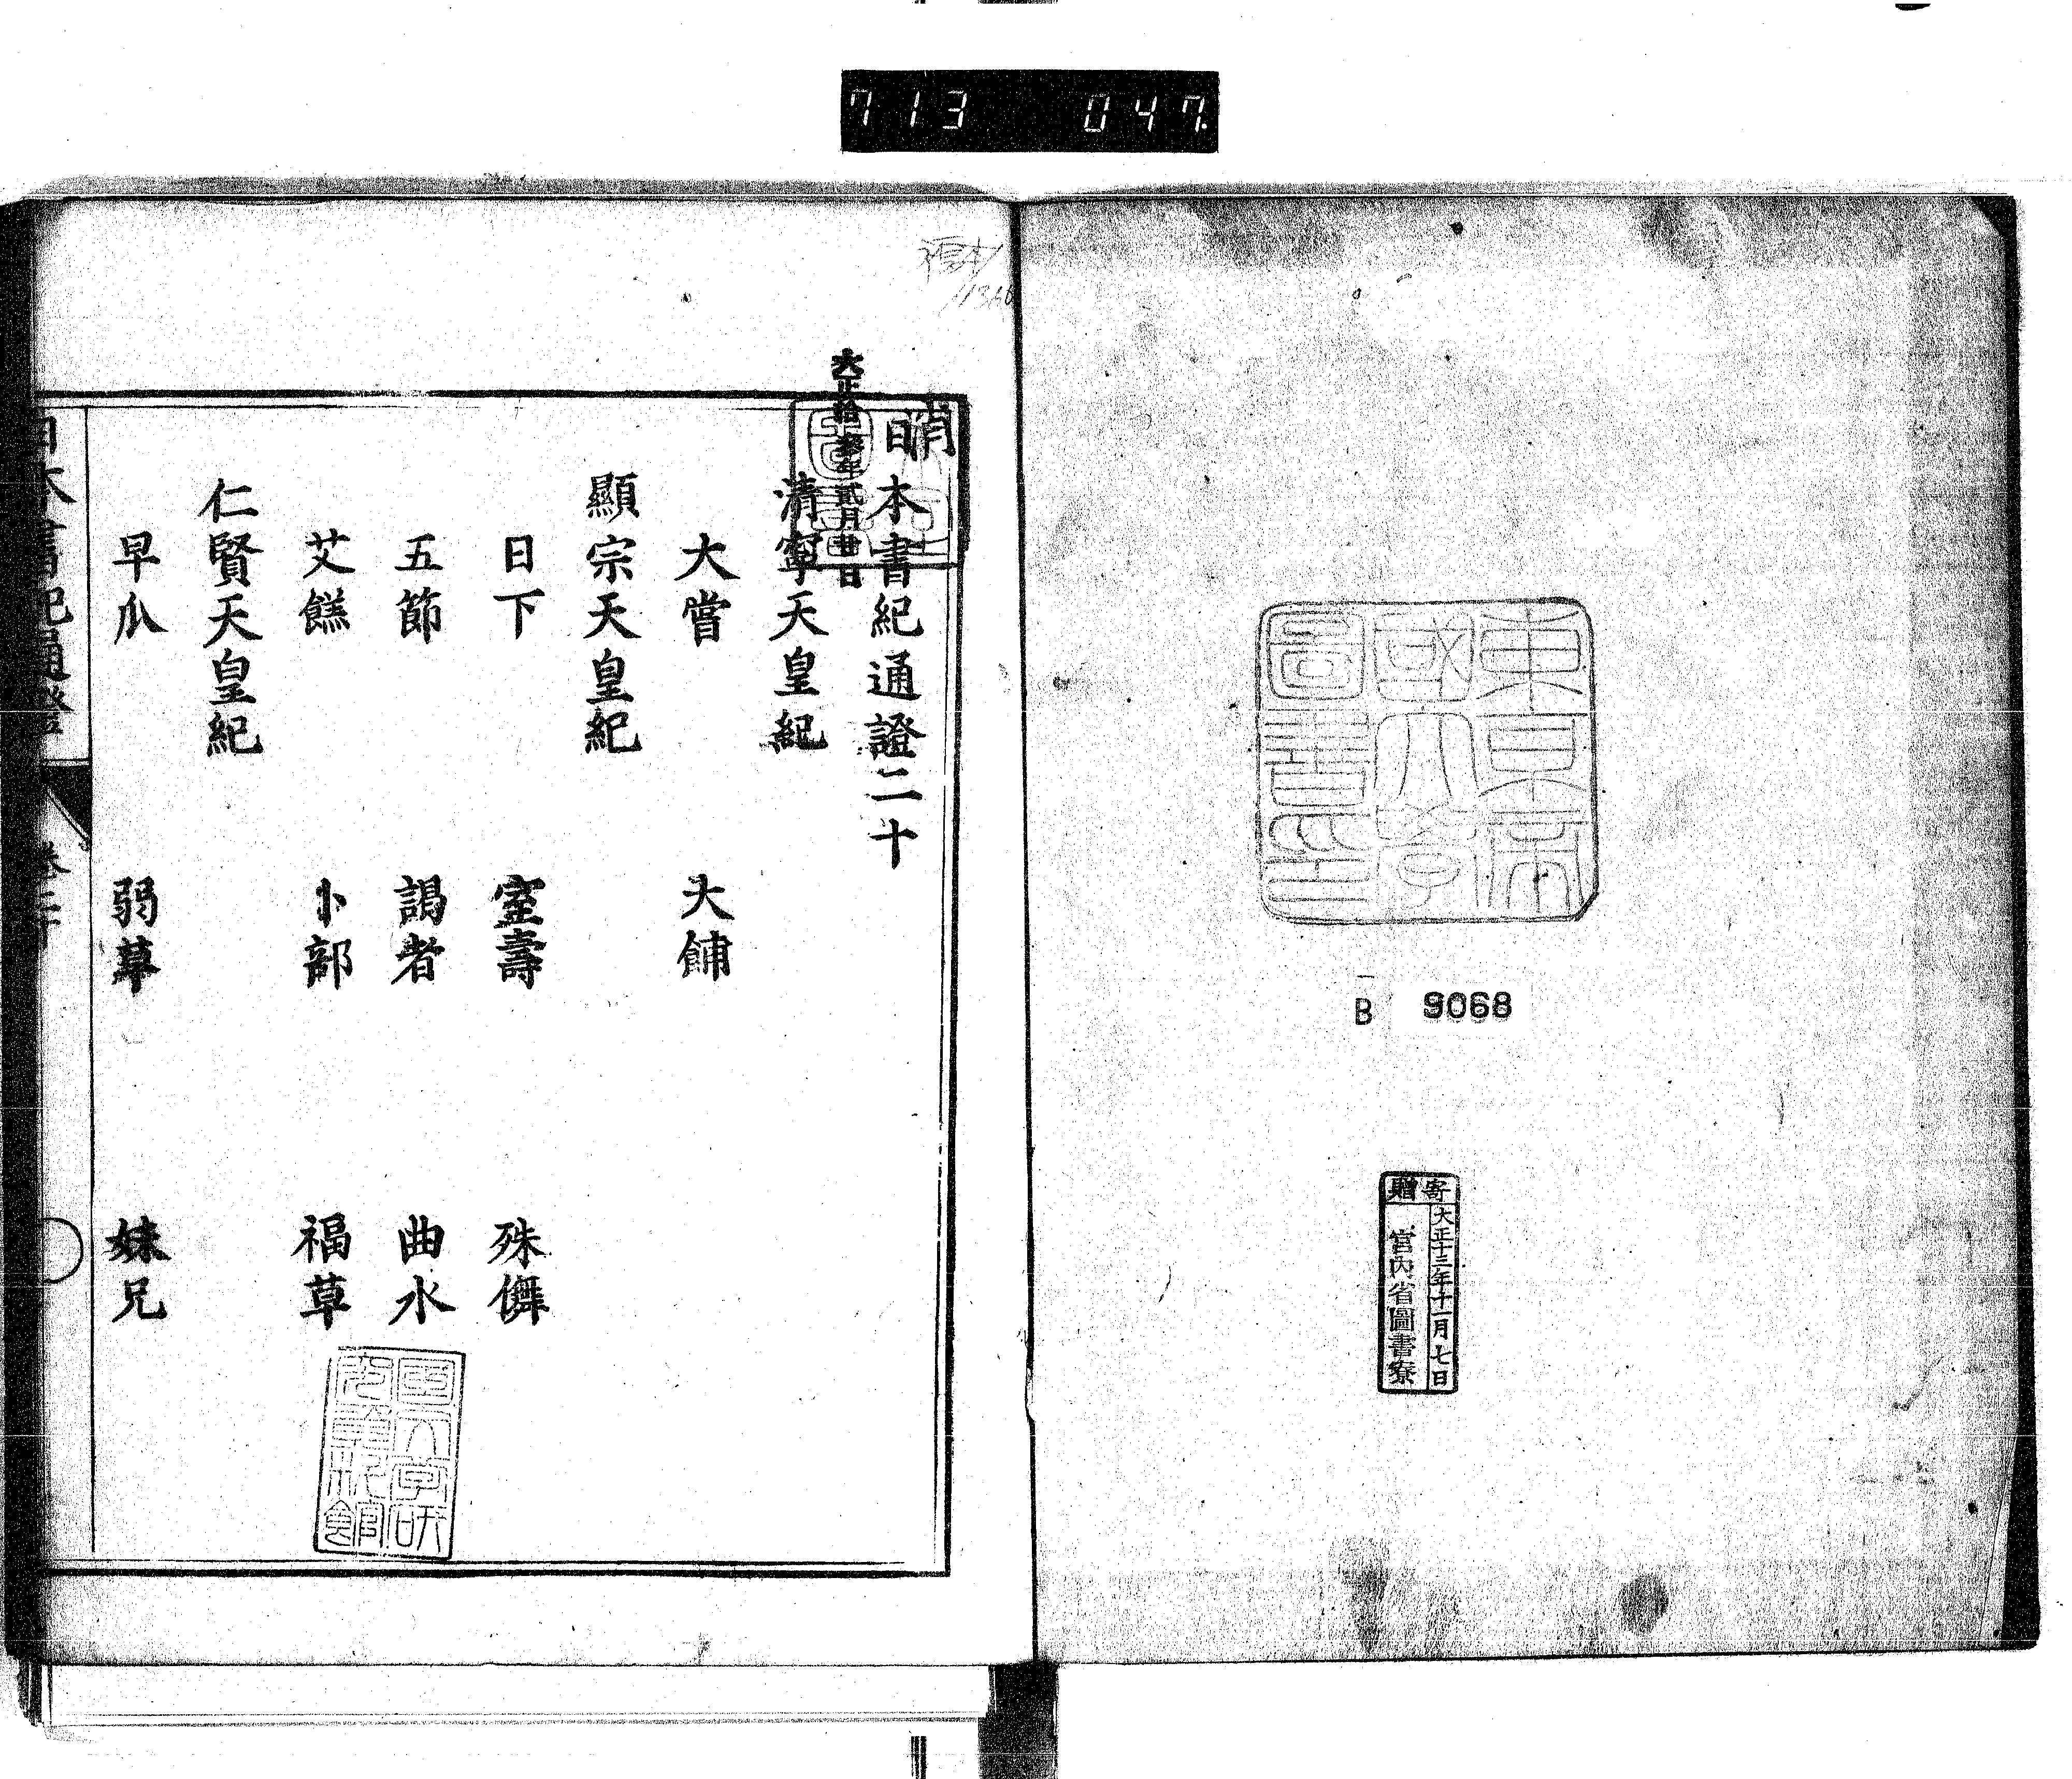 713 047.
東京帝
國大學
圖書印
B 9068
寄贈
大正十三年十一月七日
宮内省圖書寮
大正拾參年貳月廿日
消
日本書紀通證二十
清寧天皇紀
大嘗 大餔
顯宗天皇紀
日下 室壽 殊儛
五節 謁者 曲水
艾餻 卜部 福草
仁賢天皇紀
早瓜 弱草 妹兄
日本書紀通證 卷二十
國文學研
究資料館